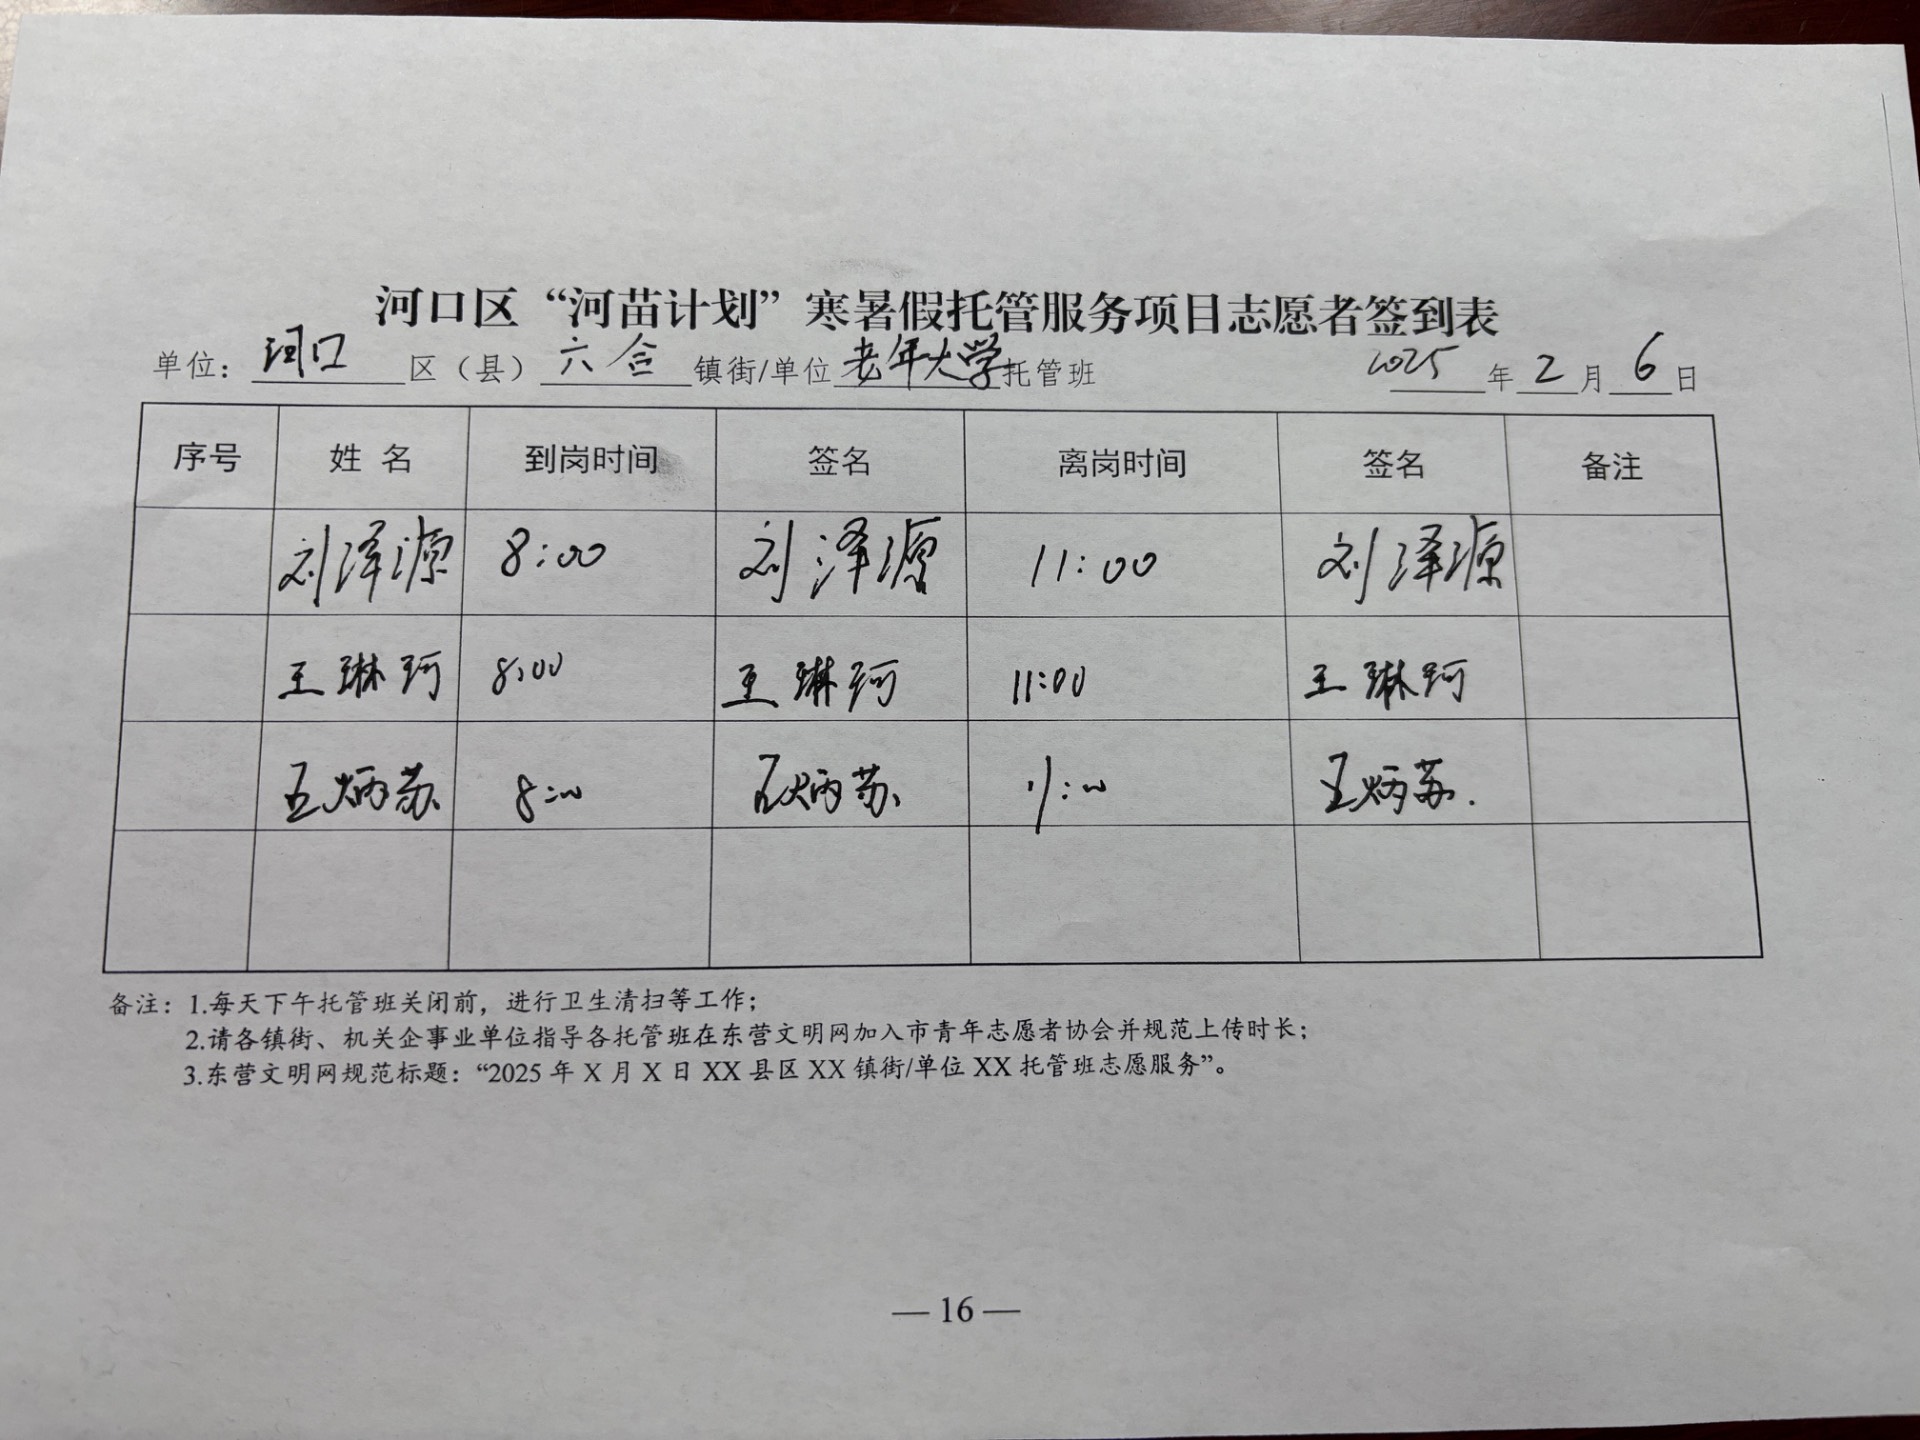 河口区“河苗计划”寒暑假托管服务项目志愿者签到表
单位：河口区（县）六合镇街/单位老年大学托管班 2025年2月6日
序号 姓名 到岗时间 签名 离岗时间 签名 备注
刘泽源 8:00 刘泽源 11:00 刘泽源
王琳珂 8:00 王琳珂 11:00 王琳珂
王炳苏 8:00 王炳苏 11:00 王炳苏.
备注：1.每天下午托管班关闭前，进行卫生清扫等工作；
2.请各镇街、机关企事业单位指导各托管班在东营文明网加入市青年志愿者协会并规范上传时长；
3.东营文明网规范标题：“2025年X月X日XX县区XX镇街/单位XX托管班志愿服务”。
—16—